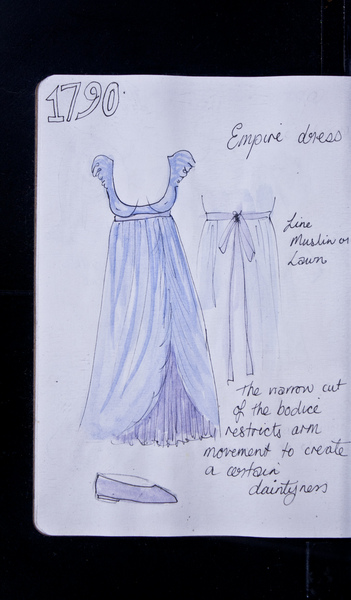 1790
Empire dress
Line
Muslin or
Lawn
The narrow cut
of the bodice
restricts arm
movement to create
a certain
daintyness